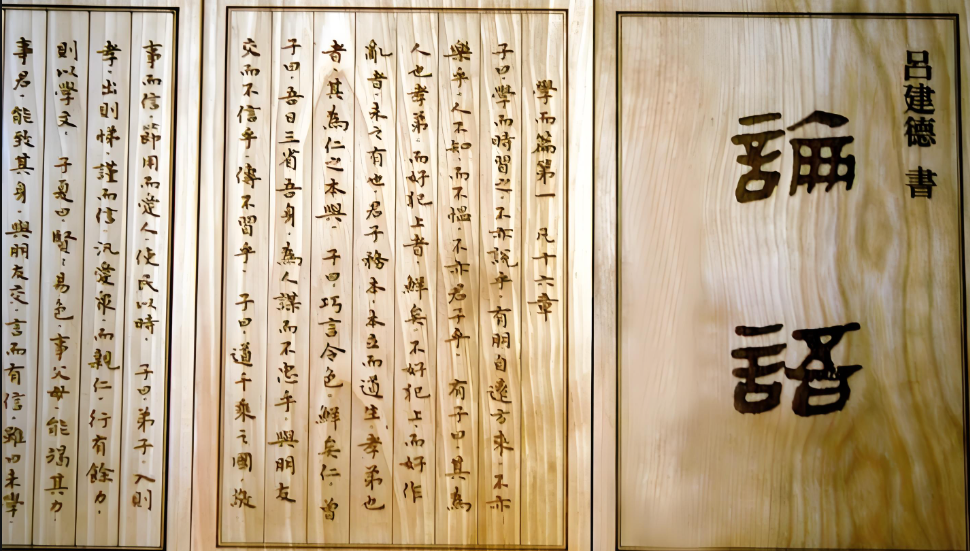 呂建德 書
論語
學而篇第一 凡十六章
子曰.學而時習之.不亦說乎.有朋自遠方來.不亦
樂乎.人不知.而不慍.不亦君子乎. 有子曰.其為
人也孝弟.而好犯上者.鮮矣.不好犯上.而好作
亂者.未之有也.君子務本.本立而道生.孝弟也
者.其為仁之本與. 子曰.巧言令色.鮮矣仁.曾
子曰.吾日三省吾身.為人謀而不忠乎.與朋友
交而不信乎.傳不習乎. 子曰.道千乘之國.敬
事而信.節用而愛人.使民以時. 子曰.弟子.入則
孝.出則悌.謹而信.汎愛眾.而親仁.行有餘力.
則以學文. 子夏曰.賢〻易色.事父母.能竭其力.
事君.能致其身.與朋友交.言而有信.雖曰未學.